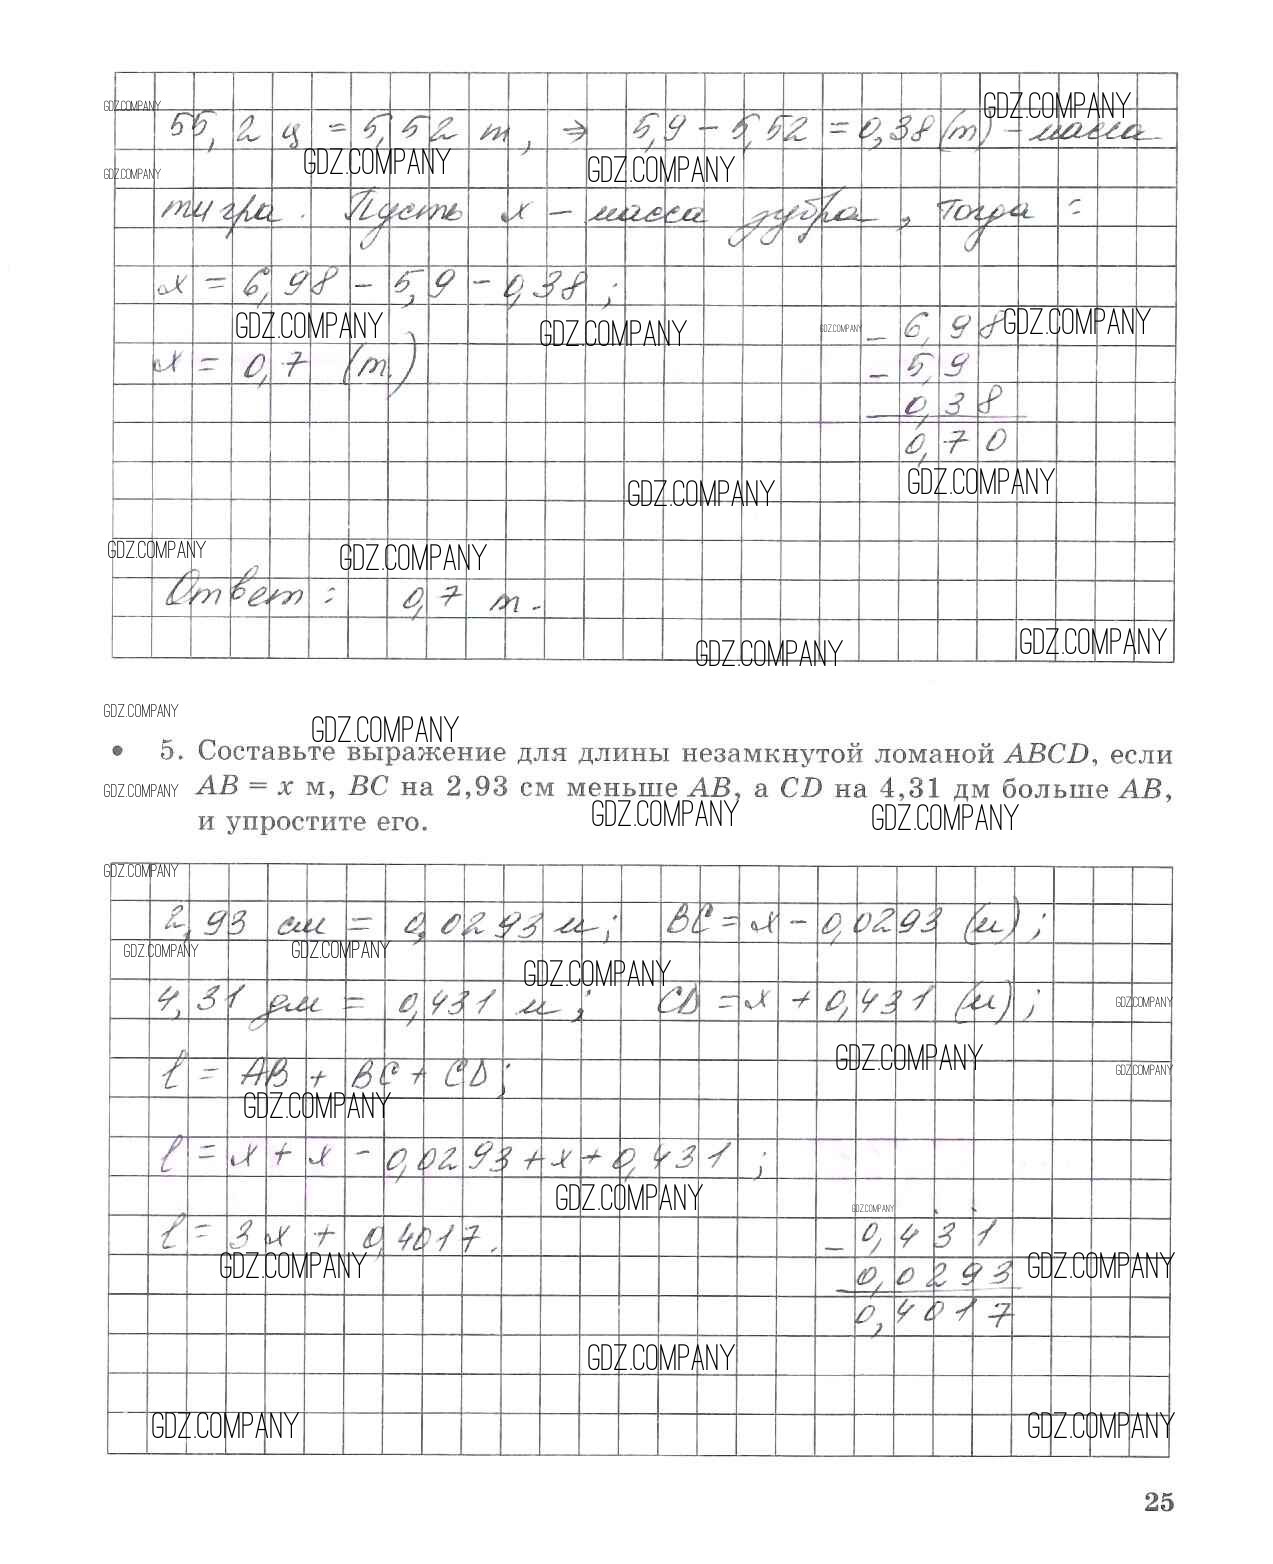 GDZ.COMPANY GDZ.COMPANY
55,2 ц = 5,52 т, ⇒ 5,9 - 5,52 = 0,38 (т) - масса
GDZ.COMPANY GDZ.COMPANY GDZ.COMPANY
тигра. Пусть x - масса зубра, тогда:
x = 6,98 - 5,9 - 0,38;
GDZ.COMPANY GDZ.COMPANY GDZ.COMPANY GDZ.COMPANY
- 6,98
x = 0,7 (т)
- 5,9
0,38
0,70
GDZ.COMPANY GDZ.COMPANY
GDZ.COMPANY GDZ.COMPANY
Ответ: 0,7 т.
GDZ.COMPANY GDZ.COMPANY
GDZ.COMPANY GDZ.COMPANY
• 5. Составьте выражение для длины незамкнутой ломаной ABCD, если
GDZ.COMPANY
AB = x м, BC на 2,93 см меньше AB, а CD на 4,31 дм больше AB,
GDZ.COMPANY GDZ.COMPANY
и упростите его.
GDZ.COMPANY
2,93 см = 0,0293 м; BC = x - 0,0293 (м);
GDZ.COMPANY GDZ.COMPANY GDZ.COMPANY
4,31 дм = 0,431 м; CD = x + 0,431 (м);
GDZ.COMPANY
GDZ.COMPANY GDZ.COMPANY
l = AB + BC + CD;
GDZ.COMPANY
l = x + x - 0,0293 + x + 0,431;
GDZ.COMPANY GDZ.COMPANY
l = 3x + 0,4017.
- 0,431
GDZ.COMPANY GDZ.COMPANY
0,0293
0,4017
GDZ.COMPANY
GDZ.COMPANY GDZ.COMPANY
25